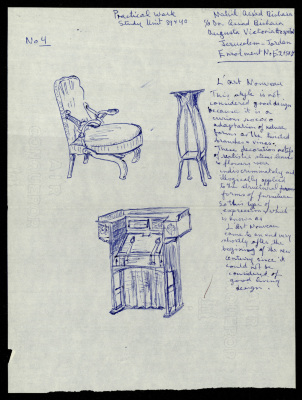 Practical Work
Study Unit 39+40
Augusta Victoria Hospital
Jerusalem - Jordan
Enrolment No
No 4
L'art Nouveau
This style is not
considered good design
because it is a
curious rococo
adaptation of nature
forms as the twisted
branches & vines.
These decorative motifs
of realistic
& flowers were
indiscriminately and
illogically applied
to the structural
forms of furniture
So this type of
expression which
is known as
L'Art Nouveau
came to an end very
shortly after the
beginning of the new
century since it
could not be
considered of
good living
design.